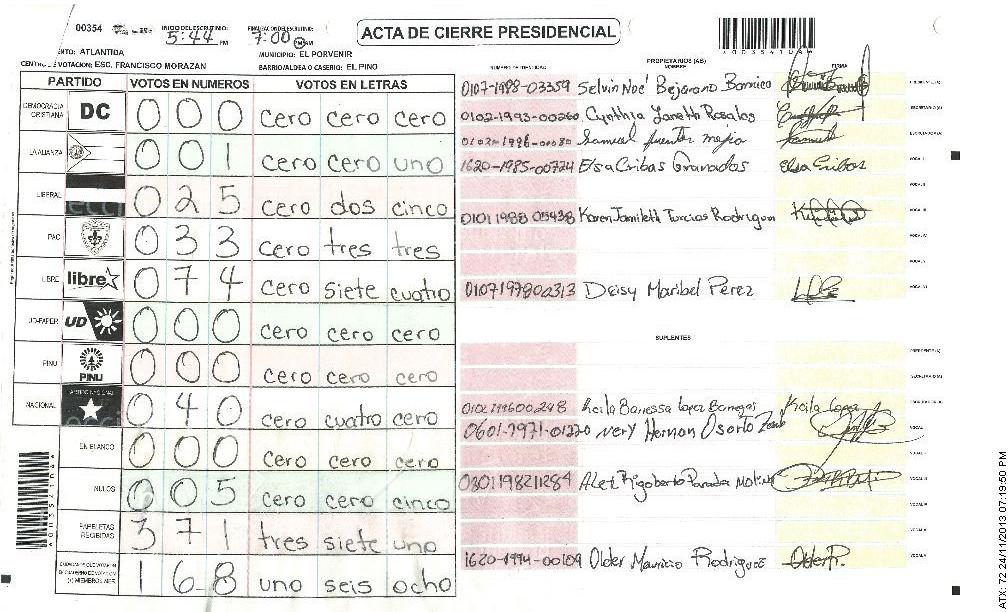 00354 INICIO DEL ESCRUTINIO: 5:44 PM FINALIZACION DEL ESCRUTINIO: 7:00 PM AM
ACTA DE CIERRE PRESIDENCIAL
NTO: ATLANTIDA MUNICIPIO: EL PORVENIR
VOTACION: ESC. FRANCISCO MORAZAN BARRIO/ALDEA O CASERIO: EL PINO
PARTIDO VOTOS EN NUMEROS VOTOS EN LETRAS
DEMOCRACIA CRISTIANA DC 0 0 0 cero cero cero
LA ALIANZA 0 0 1 cero cero uno
LIBERAL 0 2 5 cero dos cinco
PAC 0 3 3 cero tres tres
LIBRE libre 0 7 4 cero siete cuatro
UD-FAPER UD 0 0 0 cero cero cero
PINU PINU 0 0 0 cero cero cero
NACIONAL PARTIDO NACIONAL 0 4 0 cero cuatro cero
EN BLANCO 0 0 0 cero cero cero
NULOS 0 0 5 cero cero cinco
PAPELETAS RECIBIDAS 3 7 1 tres siete uno
1 6 8 uno seis ocho
NUMERO DE IDENTIDAD PROPIETARIOS (AS) NOMBRE FIRMA
0107-1988-03359 Selvin Noé Bejarano Barrico PRESIDENTE(A)
0102-1993-00260 Cynthia Janeth Rosales SECRETARIO(A)
0102-1996-00080 Samuel fuentes mejia Samuel ESCRUTADOR(A)
1620-1985-00724 Elsa Cribas Granados Elsa Cribas VOCAL I
VOCAL II
0101 1988 05438 Karen Jamileth Turcios Rodriguez VOCAL III
VOCAL IV
VOCAL V
0107197800313 Deisy Maribel Perez VOCAL VI
SUPLENTES
PRESIDENTE(A)
SECRETARIO(A)
0102199600248 Keila Banessa Lopez Banegas Keila Lopez ESCRUTADOR(A)
0601-1971-01220 Nery Hernan Osorto VOCAL I
VOCAL II
0801198211284 Alex Rigoberto Parada Molina VOCAL III
VOCAL IV
VOCAL V
1620-1994-00109 Older Mauricio Rodriguez Older R. VOCAL VI
ATX: 72 24/11/2013 07:19:50 PM